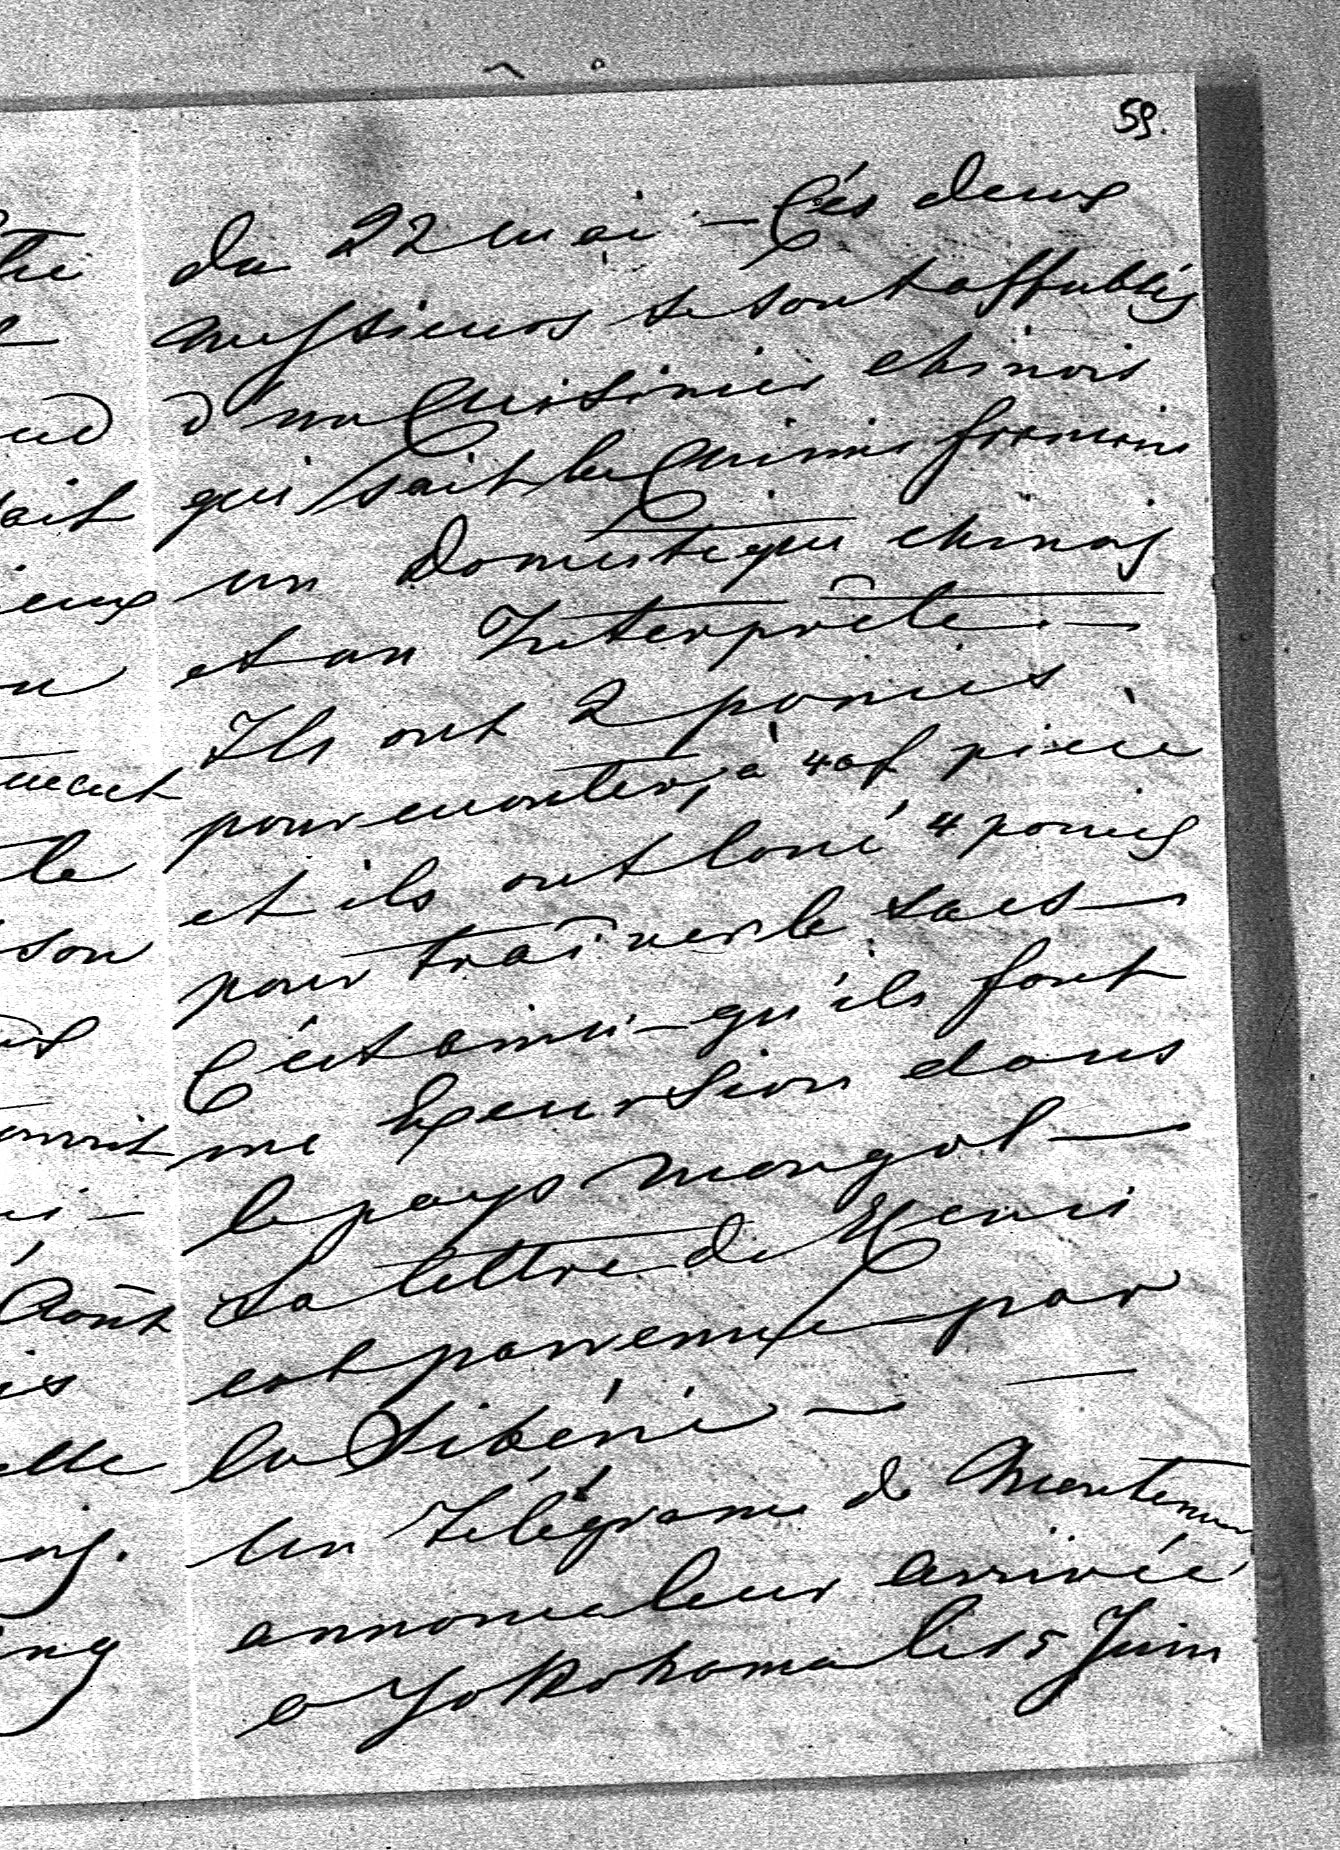 59.
du 22 mai - Cés deux
messieurs se sont affublés
d'un Cuisinier chinois
qui sait la Cuisine francaise
un Domestique chinois
et un Interprête -
Ils ont 2 ponies
pour monter, à 40f pièce
et ils ont loué 4 ponies
pour traîner le sacs -
C'est ainsi - qu'ils font
une Excursion dans
le pays Mongol -
La lettre de Henri
est parvenue par
la Sibérie -
Un Télégrame de
annonca leur arrivée
a Yokohama le 15 Juin